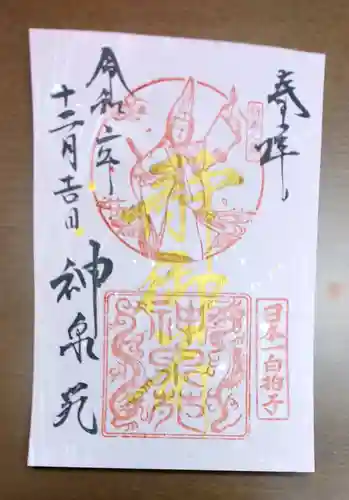 奉拝
静御前
日本一白拍子
神泉苑
令和六年
十二月吉日
神泉苑